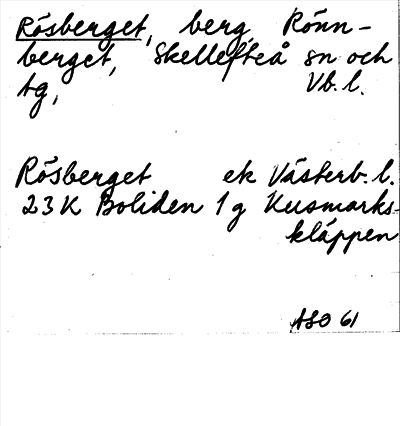 Rösberget, berg, Rönn-
berget, Skellefteå sn och
tg, Vb. l.
Rösberget ek Västerb. l.
23K Boliden 1g Kusmarks-
kläppen
ASO 61